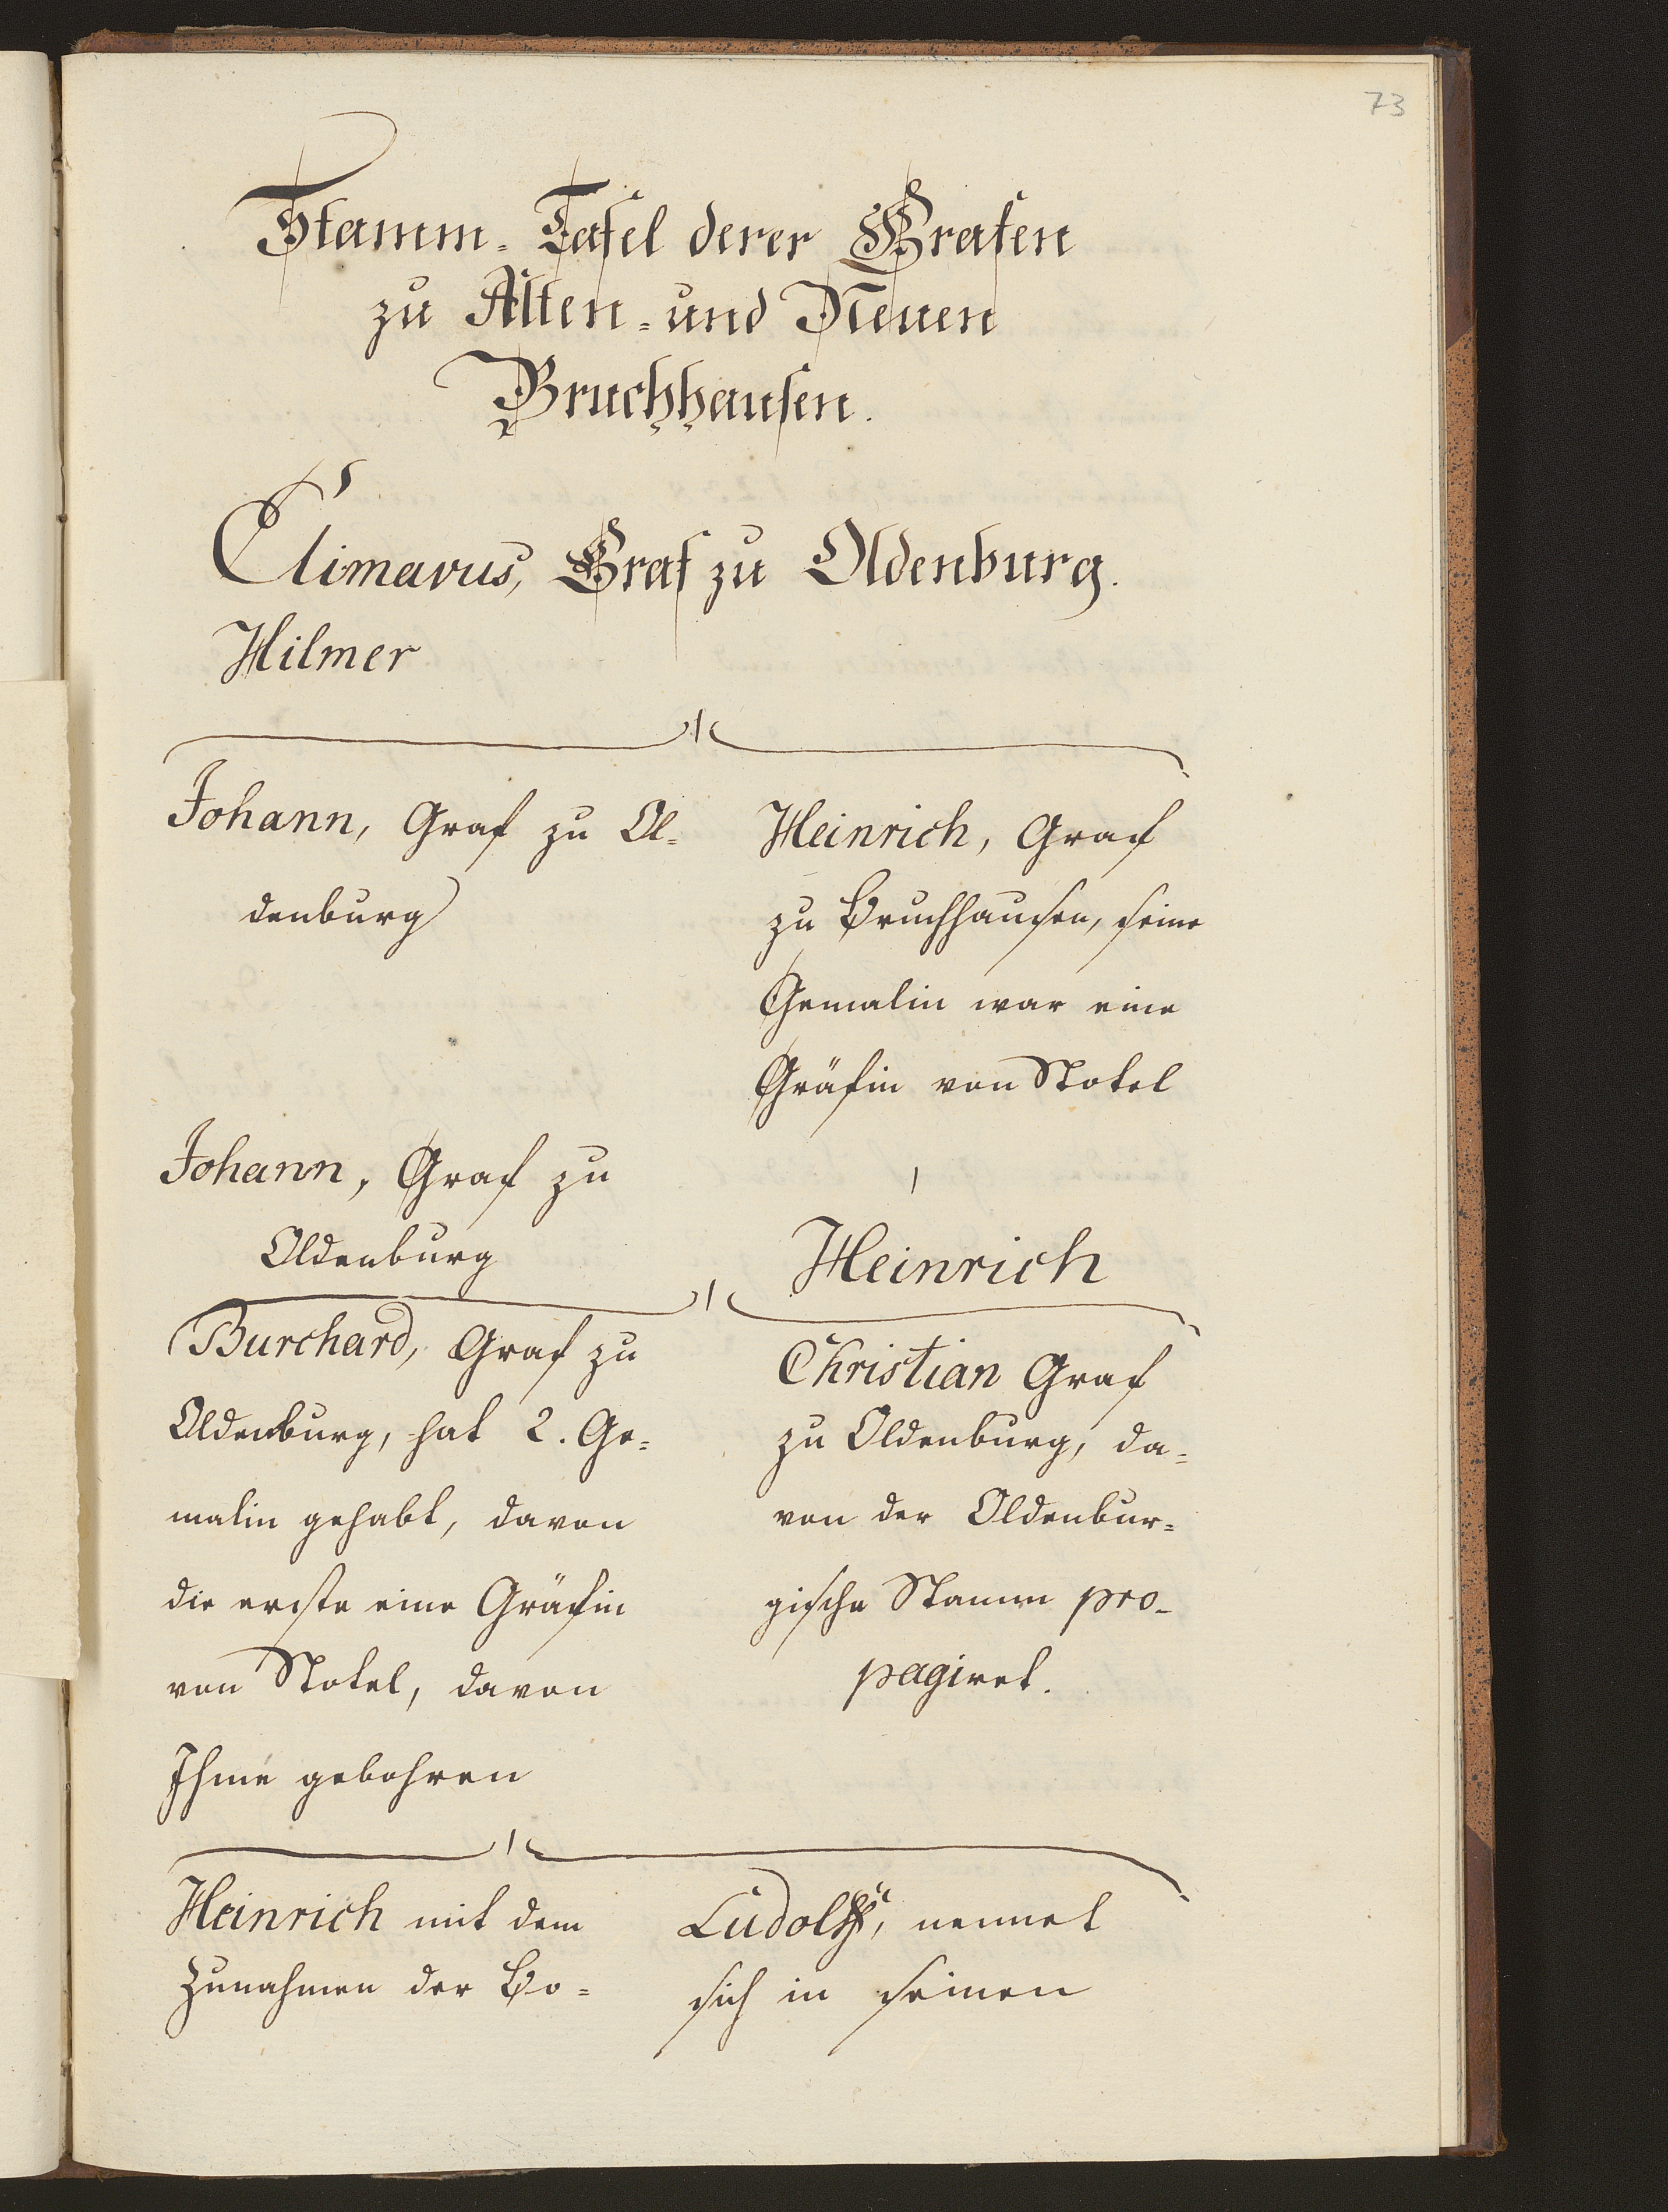 73
Stamm-Tafel derer Grafen
zu Alten- und Neuen
Bruchhausen.
Elimarus, Graf zu Oldenburg.
Hilmer
Johann, Graf zu Ol-
denburg
Heinrich, Graf
zu Bruchhausen, seine
Gemalin war eine
Gräfin von Stotel
Johann, Graf zu
Oldenburg
Heinrich
Burchard, Graf zu
Oldenburg, hat 2. Ge-
malin gehabt, davon
die erste eine Gräfin
von Stotel, davon
Ihme gebohren
Christian Graf
zu Oldenburg, da-
von der Oldenbur-
gische Stamm pro-
pagiret.
Heinrich mit dem
Zunahmen der Bo-
Ludolff, nennet
sich in seinen